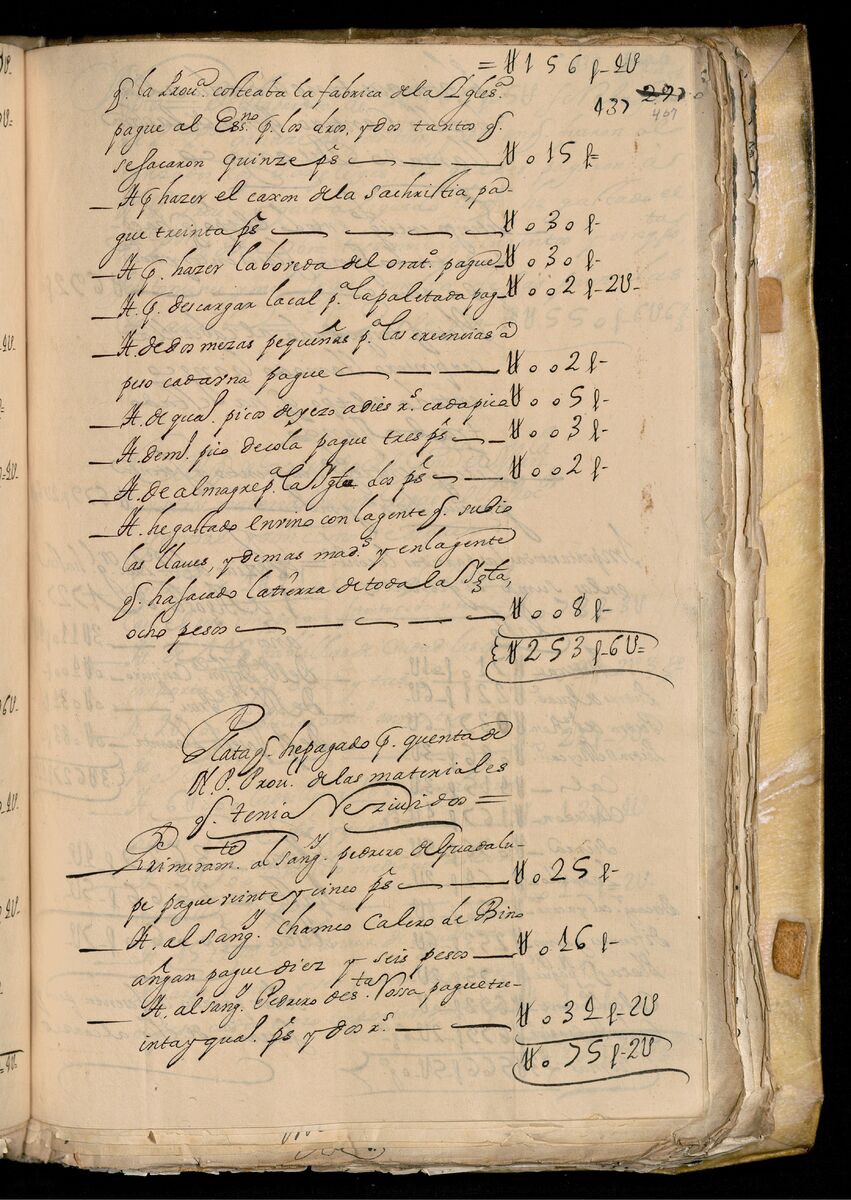 = U156 p-2U
q. la Prou.ª costeaba la fabrica de la Ygles.ª
437 297
407
pague al Ess.no p. los dros, y dos tantos q.
se sacaron quinze p.s — — — U o 15 p=
— It p hazer el caxon de la sachristia, pa-
gue treinta p.s — — — — U o 3 o p-
— It p. hazer la boveda del orat.o pague U o 3 o p-
— It p. descargar la cal p.ª la paletada pag- U o o 2 p-2U
— It. de dos mezas pequeñas p.ª las creencias a
peso cada vna pague — — — U o o 2 p-
— It. de quat.o picos de yezo a dies r.s cada pico U o o 5 p-
— It. de m.o pico de cola pague tres p.s — — U o o 3 p-
— It. de almagre p.ª la Ygla. dos p.s — — U o o 2 p-
— It. he gastado en vino con la gente q. subio
las llaves, y demas mad.s y en la gente
q. ha sacado la tierra de toda la Yglª,
ocho pesos — — — — — U o o 8 p-
U253 p-6U=
Plata q. he pagado p. quenta de
N. P. Prou.l de los materiales
q. tenia Resziuidos =
Primeram.te al sang.y pedrero de Guadalu-
pe pague veinte y cinco p.s — — U o 25 p-
— It. al sang.y chameo Calero de Bino
angan pague diez y seis pesos — U o 16 p-
— It. al sang.y Pedrero de s.ta Rossa pague tre-
inta y quat.o p.s y dos r.s — — — U o 34 p-2U
U o 75 p-2U